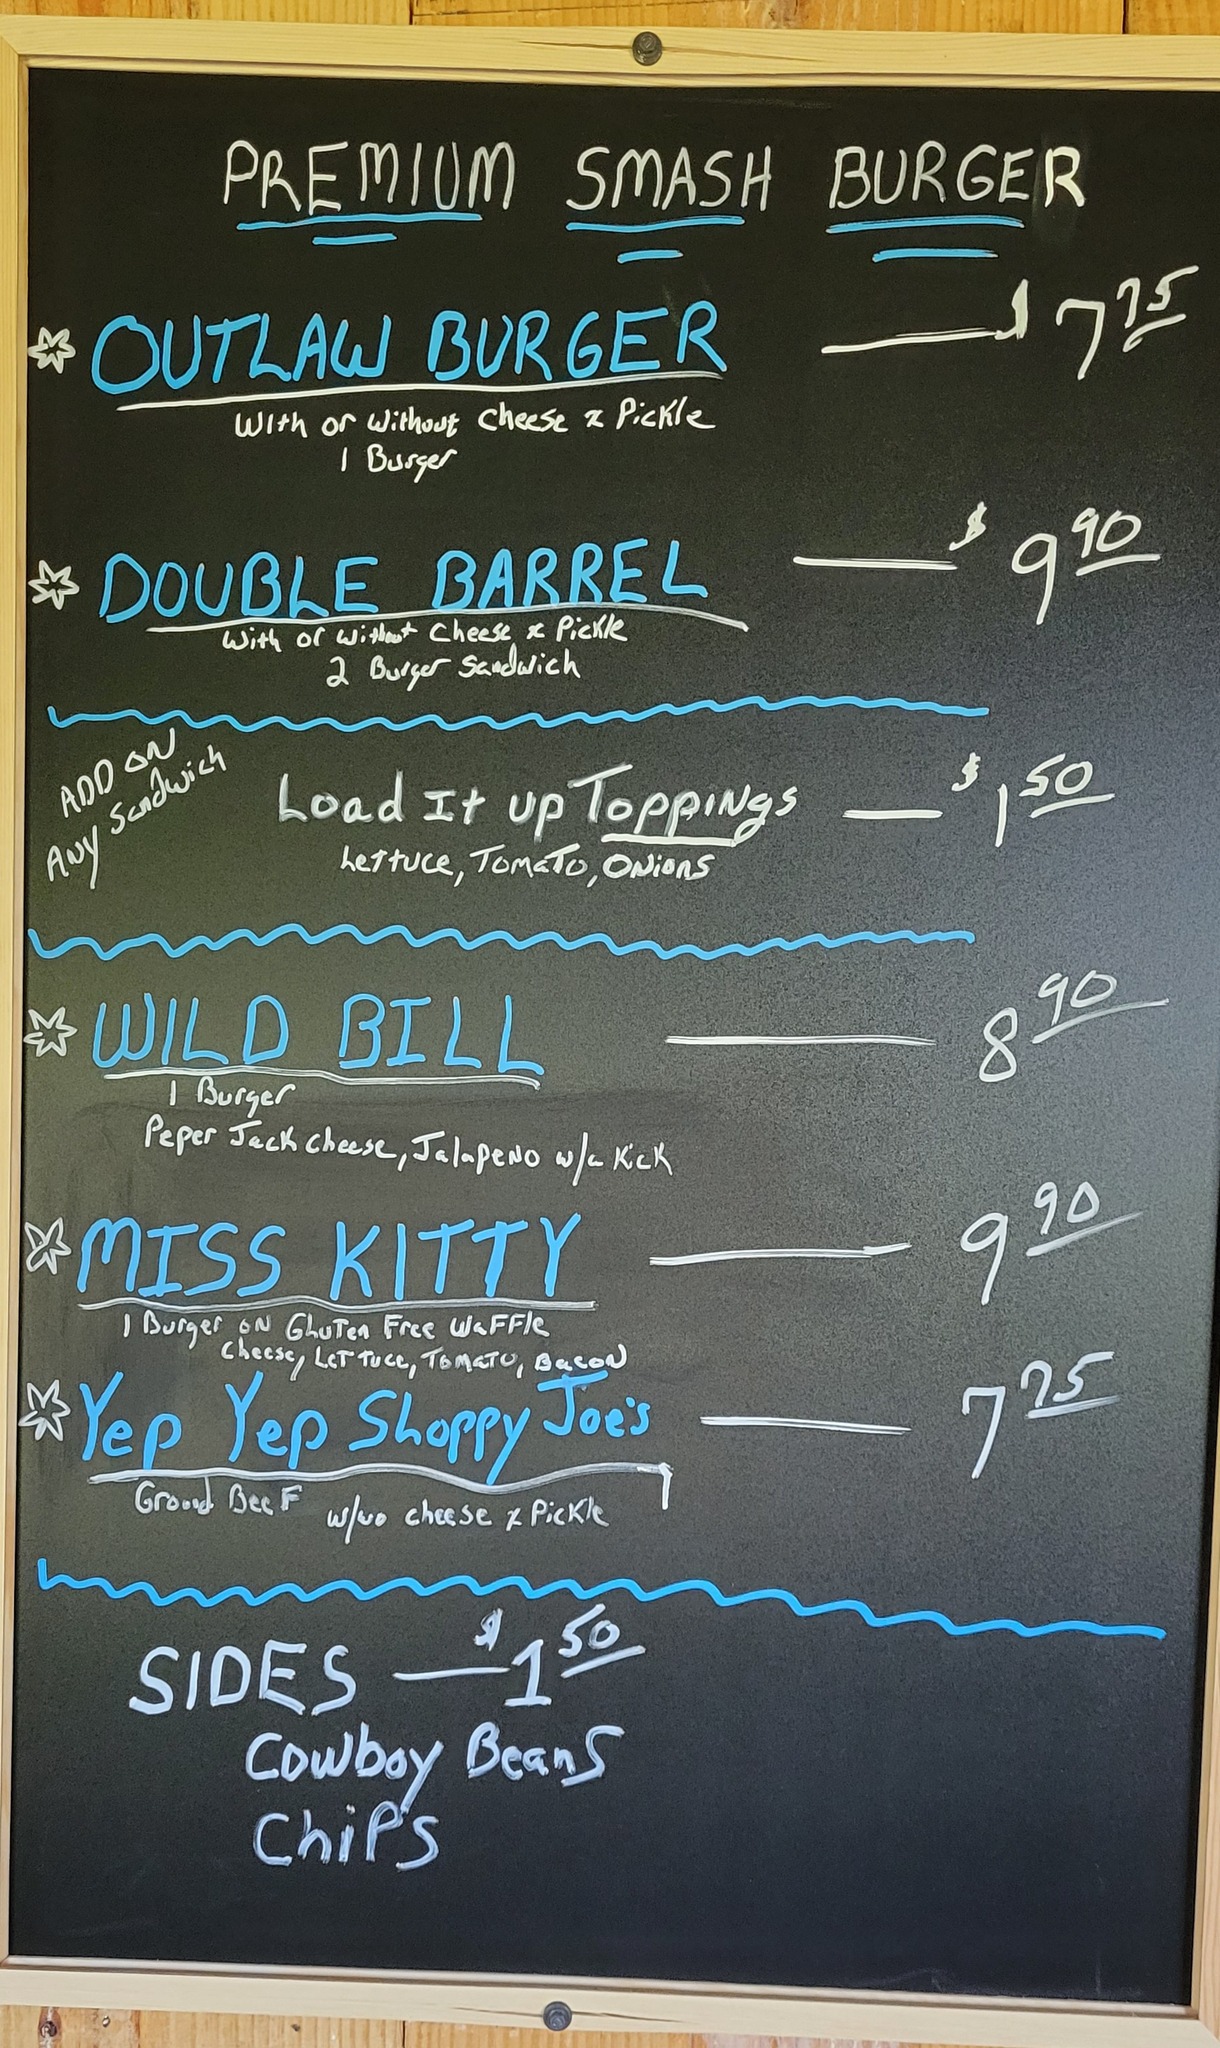 PREMIUM SMASH BURGER
OUTLAW BURGER — $7.75
With or Without Cheese & Pickle
1 Burger
DOUBLE BARREL — $9.90
With or Without Cheese & Pickle
2 Burger Sandwich
ADD ON
ANY Sandwich
Load It up Toppings — $1.50
Lettuce, Tomato, Onions
WILD BILL — 8.90
1 Burger
Peper Jack cheese, Jalapeno w/a Kick
MISS KITTY — 9.90
1 Burger on Gluten Free Waffle
Cheese, Lettuce, Tomato, Bacon
Yep Yep Shoppy Joe's — 7.75
Ground Beef w/wo cheese & Pickle
SIDES — $1.50
Cowboy Beans
Chips